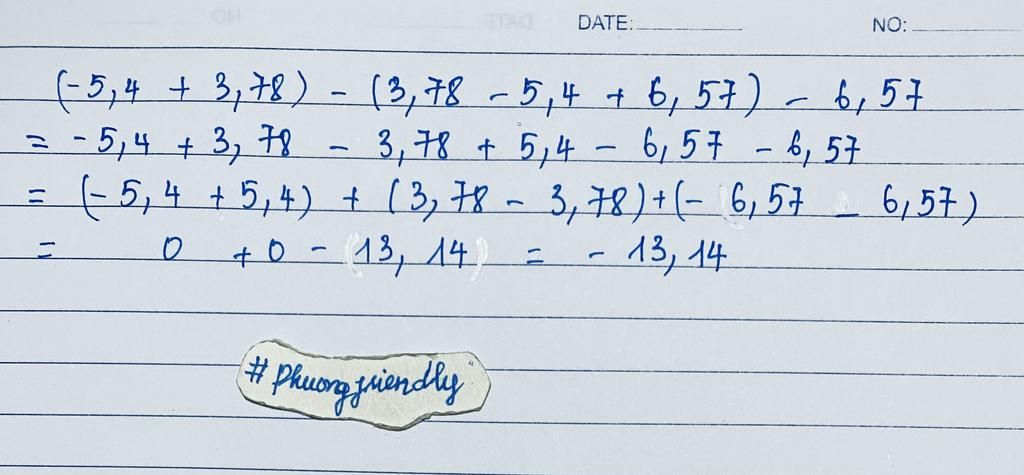 DATE: NO:
(-5,4 + 3,78) - (3,78 - 5,4 + 6,57) - 6,57
= -5,4 + 3,78 - 3,78 + 5,4 - 6,57 - 6,57
= (-5,4 + 5,4) + (3,78 - 3,78) + (- 6,57 - 6,57)
= 0 + 0 - 13,14 = - 13,14
# Phuongfriendly